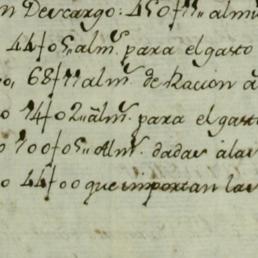 n Descargo: 450/11,, almu
44/05,, alms. para el gasto
o, 68/11 alms. de Racion a
o 74/02,, alms. para el gast
o 700/05,, Alms. dadas a las
o 44/00 que importan las